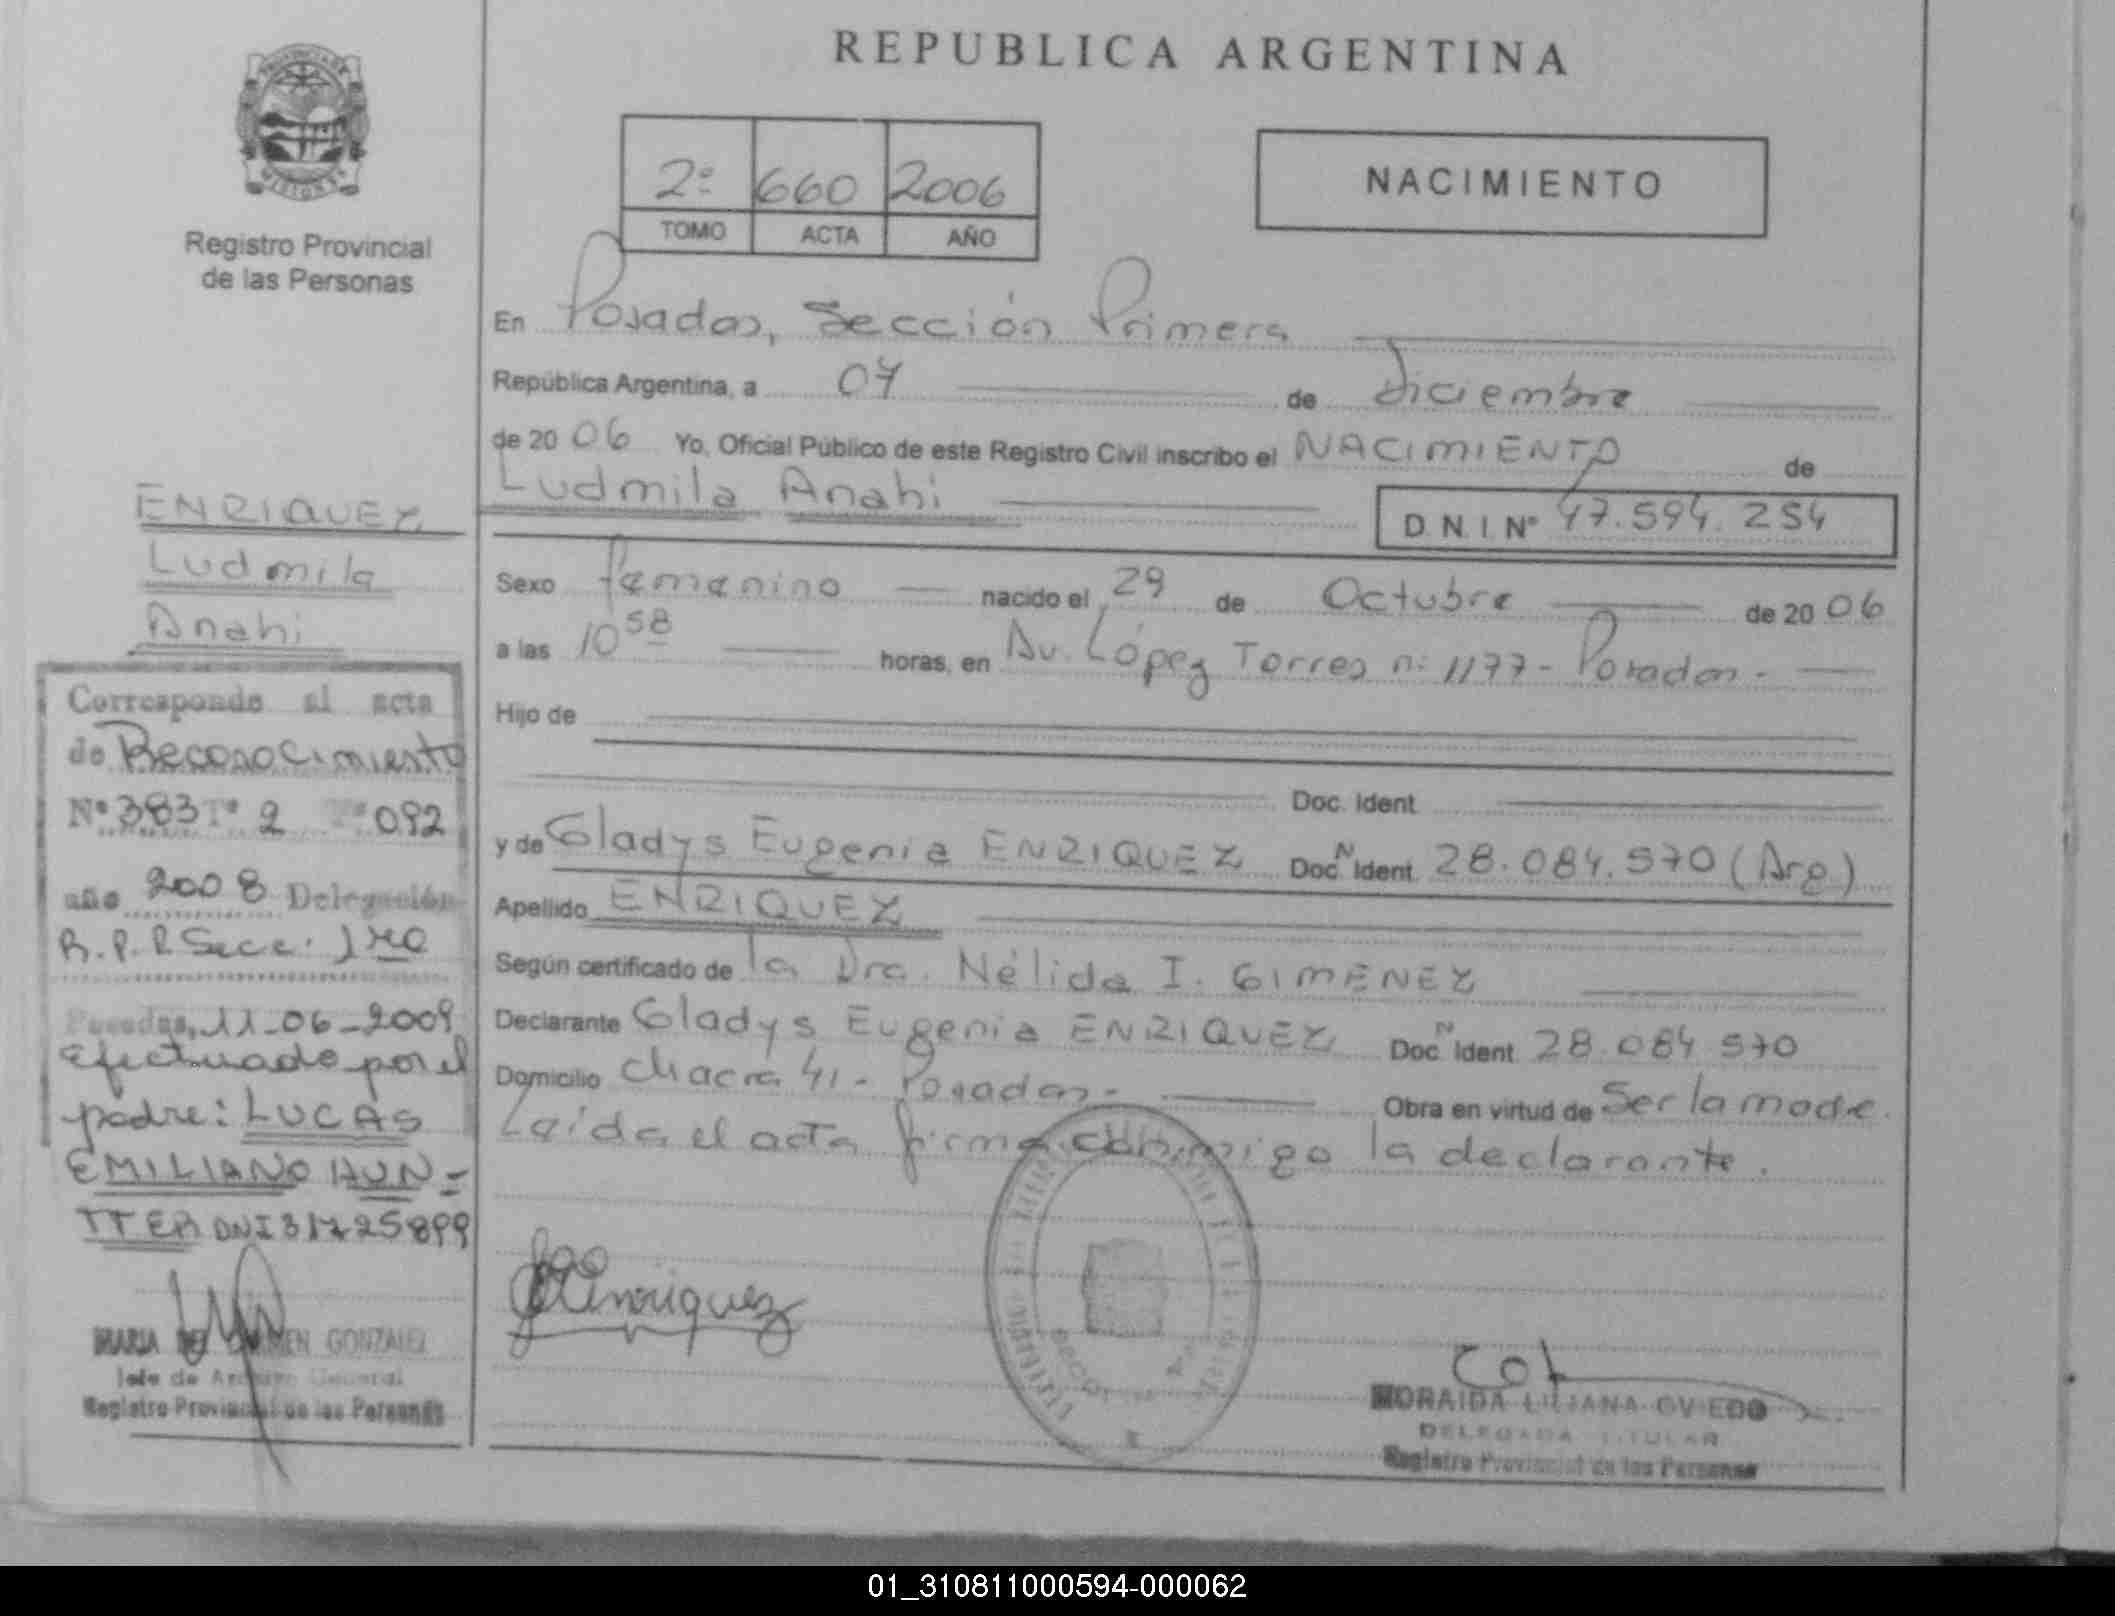 REPUBLICA ARGENTINA
PROVINCIA DE
MISIONES
Registro Provincial
de las Personas
2º 660 2006
TOMO ACTA AÑO
NACIMIENTO
En Posadas, Sección Primera
República Argentina, a 07 de Diciembre
de 20 06 Yo, Oficial Público de este Registro Civil inscribo el NACIMIENTO de
Ludmila Anahi
D.N.I. Nº 47.594.254
Sexo femenino nacido el 29 de Octubre de 20 06
a las 10 58 horas, en Av. López Torres nº 1177 - Posadas -
Hijo de
Doc. Ident.
y de Gladys Eugenia ENRIQUEZ Doc. N Ident. 28.084.570 (Arg.)
Apellido ENRIQUEZ
Según certificado de la Dra. Nélida I. GIMENEZ
Declarante Gladys Eugenia ENRIQUEZ Doc. N Ident. 28.084.570
Domicilio Chacra 41 - Posadas - Obra en virtud de Ser la madre.
Leída el acta firma conmigo la declarante.
Enriquez
MORAIDA LILIANA OVIEDO
DELEGADA TITULAR
Registro Provincial de las Personas
ENRIQUEZ
Ludmila
Anahi
Corresponde al acta
de Reconocimiento
Nº 383 Tº 2 Fº 092
año 2008 Delegación
R.P.P. Secc. 1ra
Posadas, 11-06-2009
Efectuado por el
padre: LUCAS
EMILIANO HUN=
TTER DNI 31725899
MARIA DEL CARMEN GONZALEZ
Jefe de Archivo General
Registro Provincial de las Personas
01_310811000594-000062